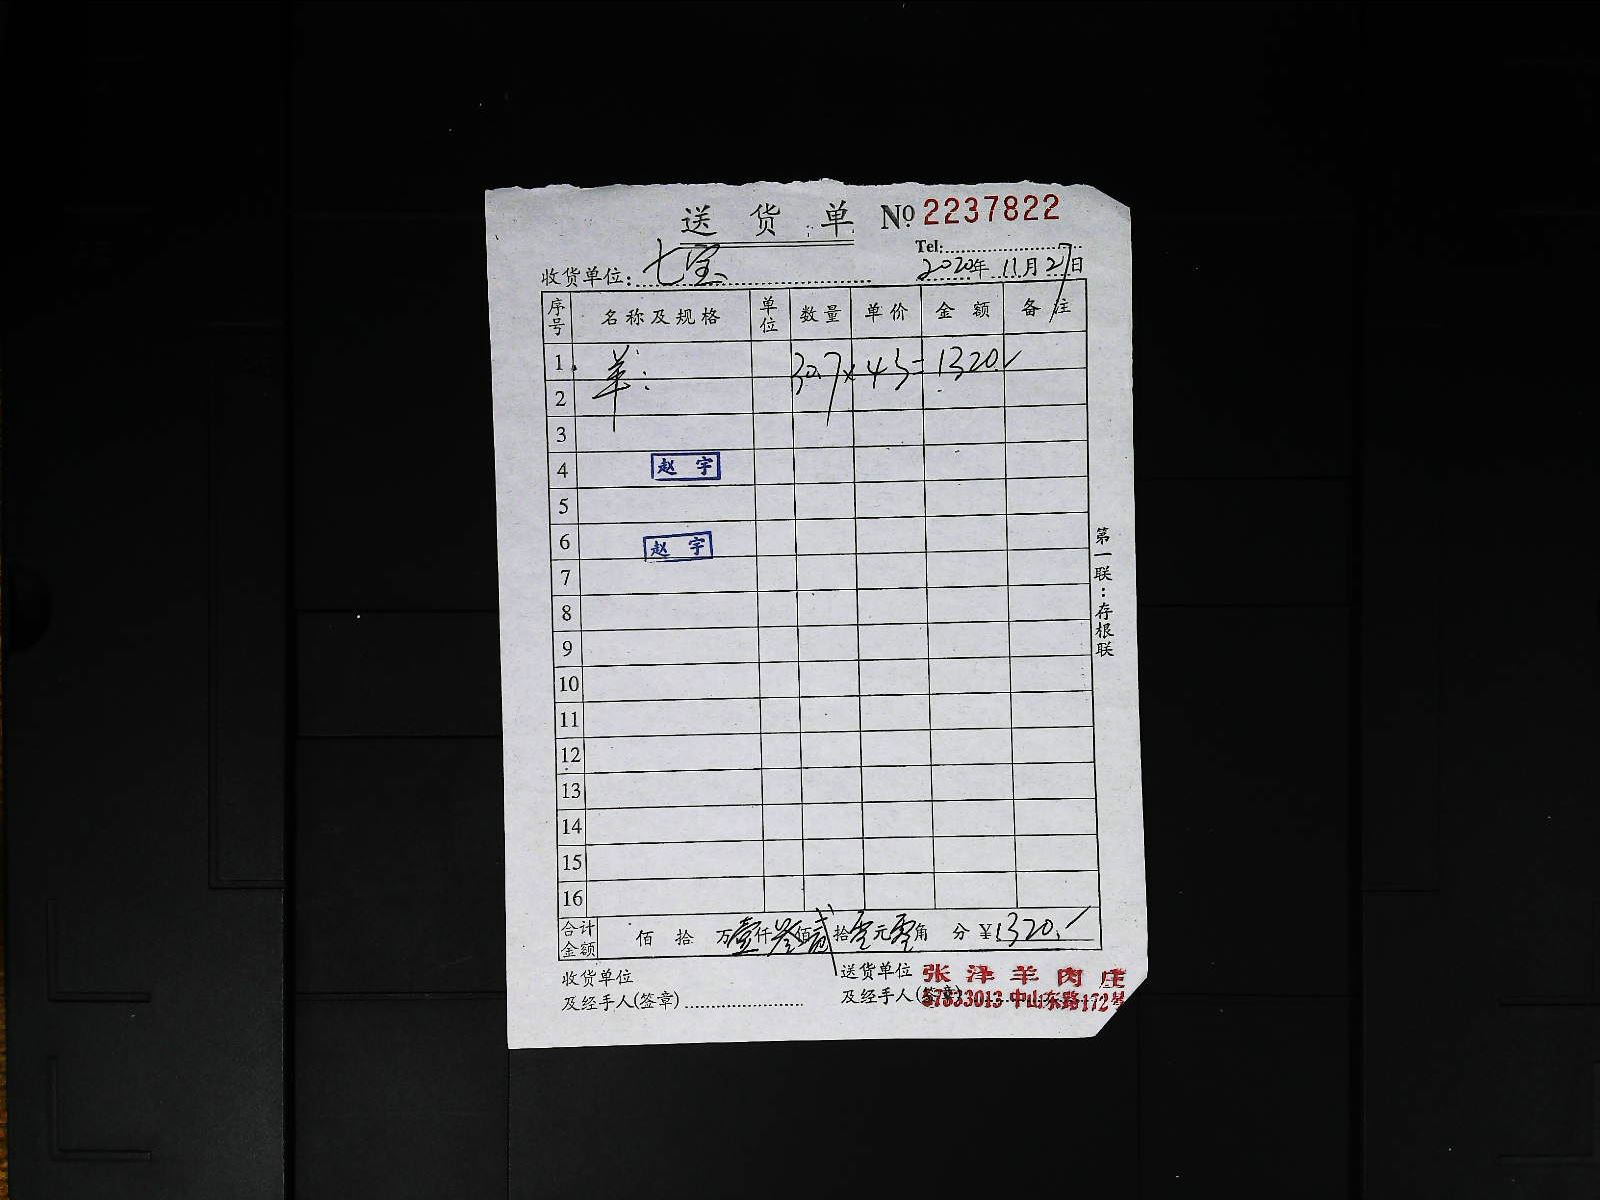 送货单 № 2237822
Tel:
收货单位: 七宝 2020年 11月27日
序号 名称及规格 单位 数量 单价 金额 备注
1 羊: 30.7 × 43 = 1320.
2
3
4 赵宇
5
6 赵宇
7
8
9
10
11
12
13
14
15
16
合计金额 佰 拾 万壹仟叁佰贰拾零元零角 分 ¥1320.
收货单位 送货单位 张泽羊肉庄
及经手人(签章) 及经手人(签章) 57833013 中山东路172号
第一联:存根联